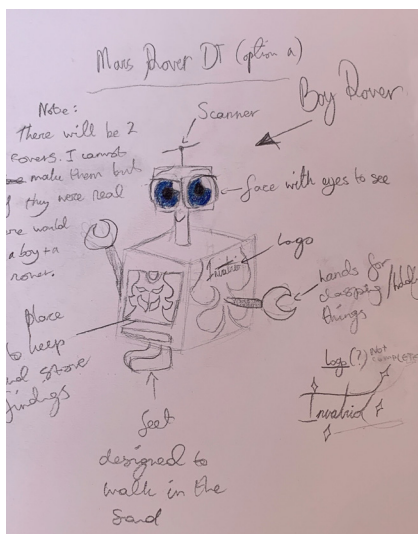 Mars Rover DT (option a)
Boy Rover
Note:
There will be 2
rovers. I cannot
make them but
they were real
would
a boy + a
rover.
Scanner
face with eyes to see
Logo
hands for
clasping/holdi
things
place
to keep
and store
findings
feet
designed to
walk in the
sand
Logo (?) NOT